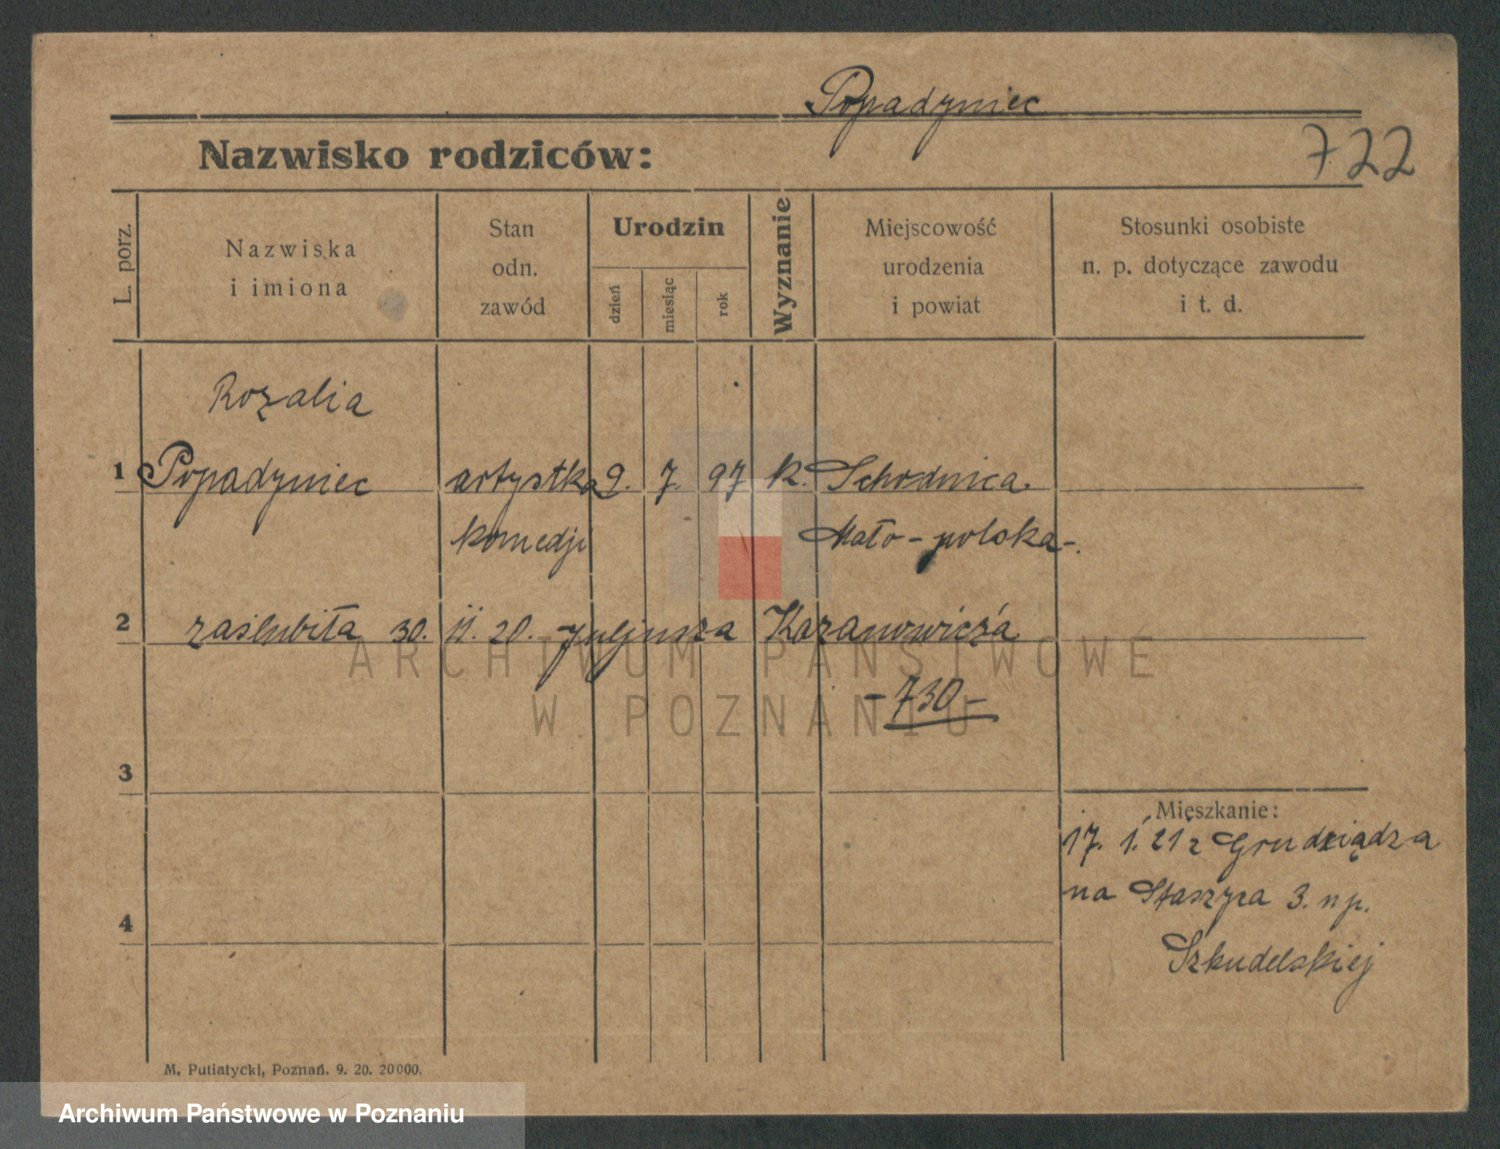 Popadyniec
722
Nazwisko rodziców:
L. porz.
Nazwiska
i imiona
Stan
odn.
zawód
Urodzin
dzień
miesiąc
rok
Wyznanie
Miejscowość
urodzenia
i powiat
Stosunki osobiste
n. p. dotyczące zawodu
i t. d.
Rozalia
1 Popadyniec artystka 9. 7. 97 k. Schodnica
komedji Mało-polska-.
2 zaślubiła 30. 11. 20. Juljusza Kazanowicza
-730-
3
Mieszkanie:
17. 1. 21 z Grudziądza
na Staszyca 3. n p.
4
Szkudelskiej
M. Putiatycki, Poznań. 9. 20. 20000.
ARCHIWUM PAŃSTWOWE
W POZNANIU
Archiwum Państwowe w Poznaniu